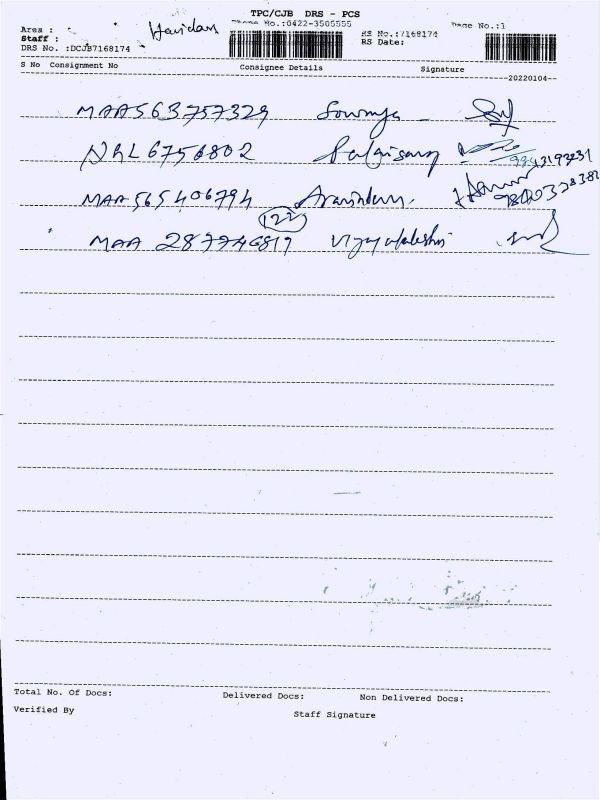 TPC/CJB DRS - PCS
Area : Haridas Phone No.:0422-3505555 Page No.:1
Staff : RS No.:7168174
DRS No. :DCJB7168174 RS Date:
S No Consignment No Consignee Details Signature
20220104
MAA563757329 Sowmya
NRL6756802 9943193231
MAA565406794 Aravindan
122
MAA 287746819 Vijayalakshmi
Total No. Of Docs: Delivered Docs: Non Delivered Docs:
Verified By Staff Signature